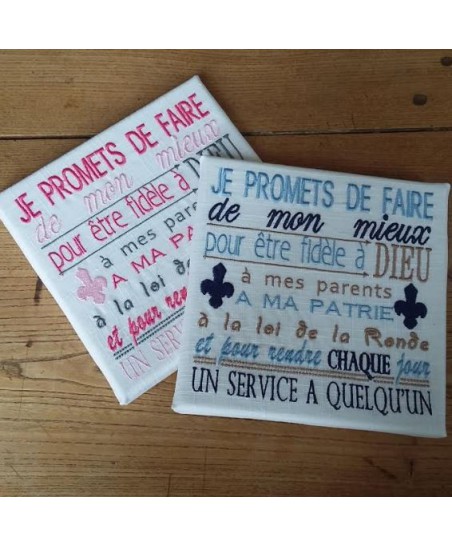 JE PROMETS DE FAIRE
de mon mieux
pour être fidèle à DIEU
à mes parents
A MA PA
à la loi de
et pour rend
UN SERV
JE PROMETS DE FAIRE
de mon mieux
pour être fidèle à DIEU
à mes parents
A MA PATRIE
à la loi de la Ronde
et pour rendre CHAQUE jour
UN SERVICE A QUELQU'UN